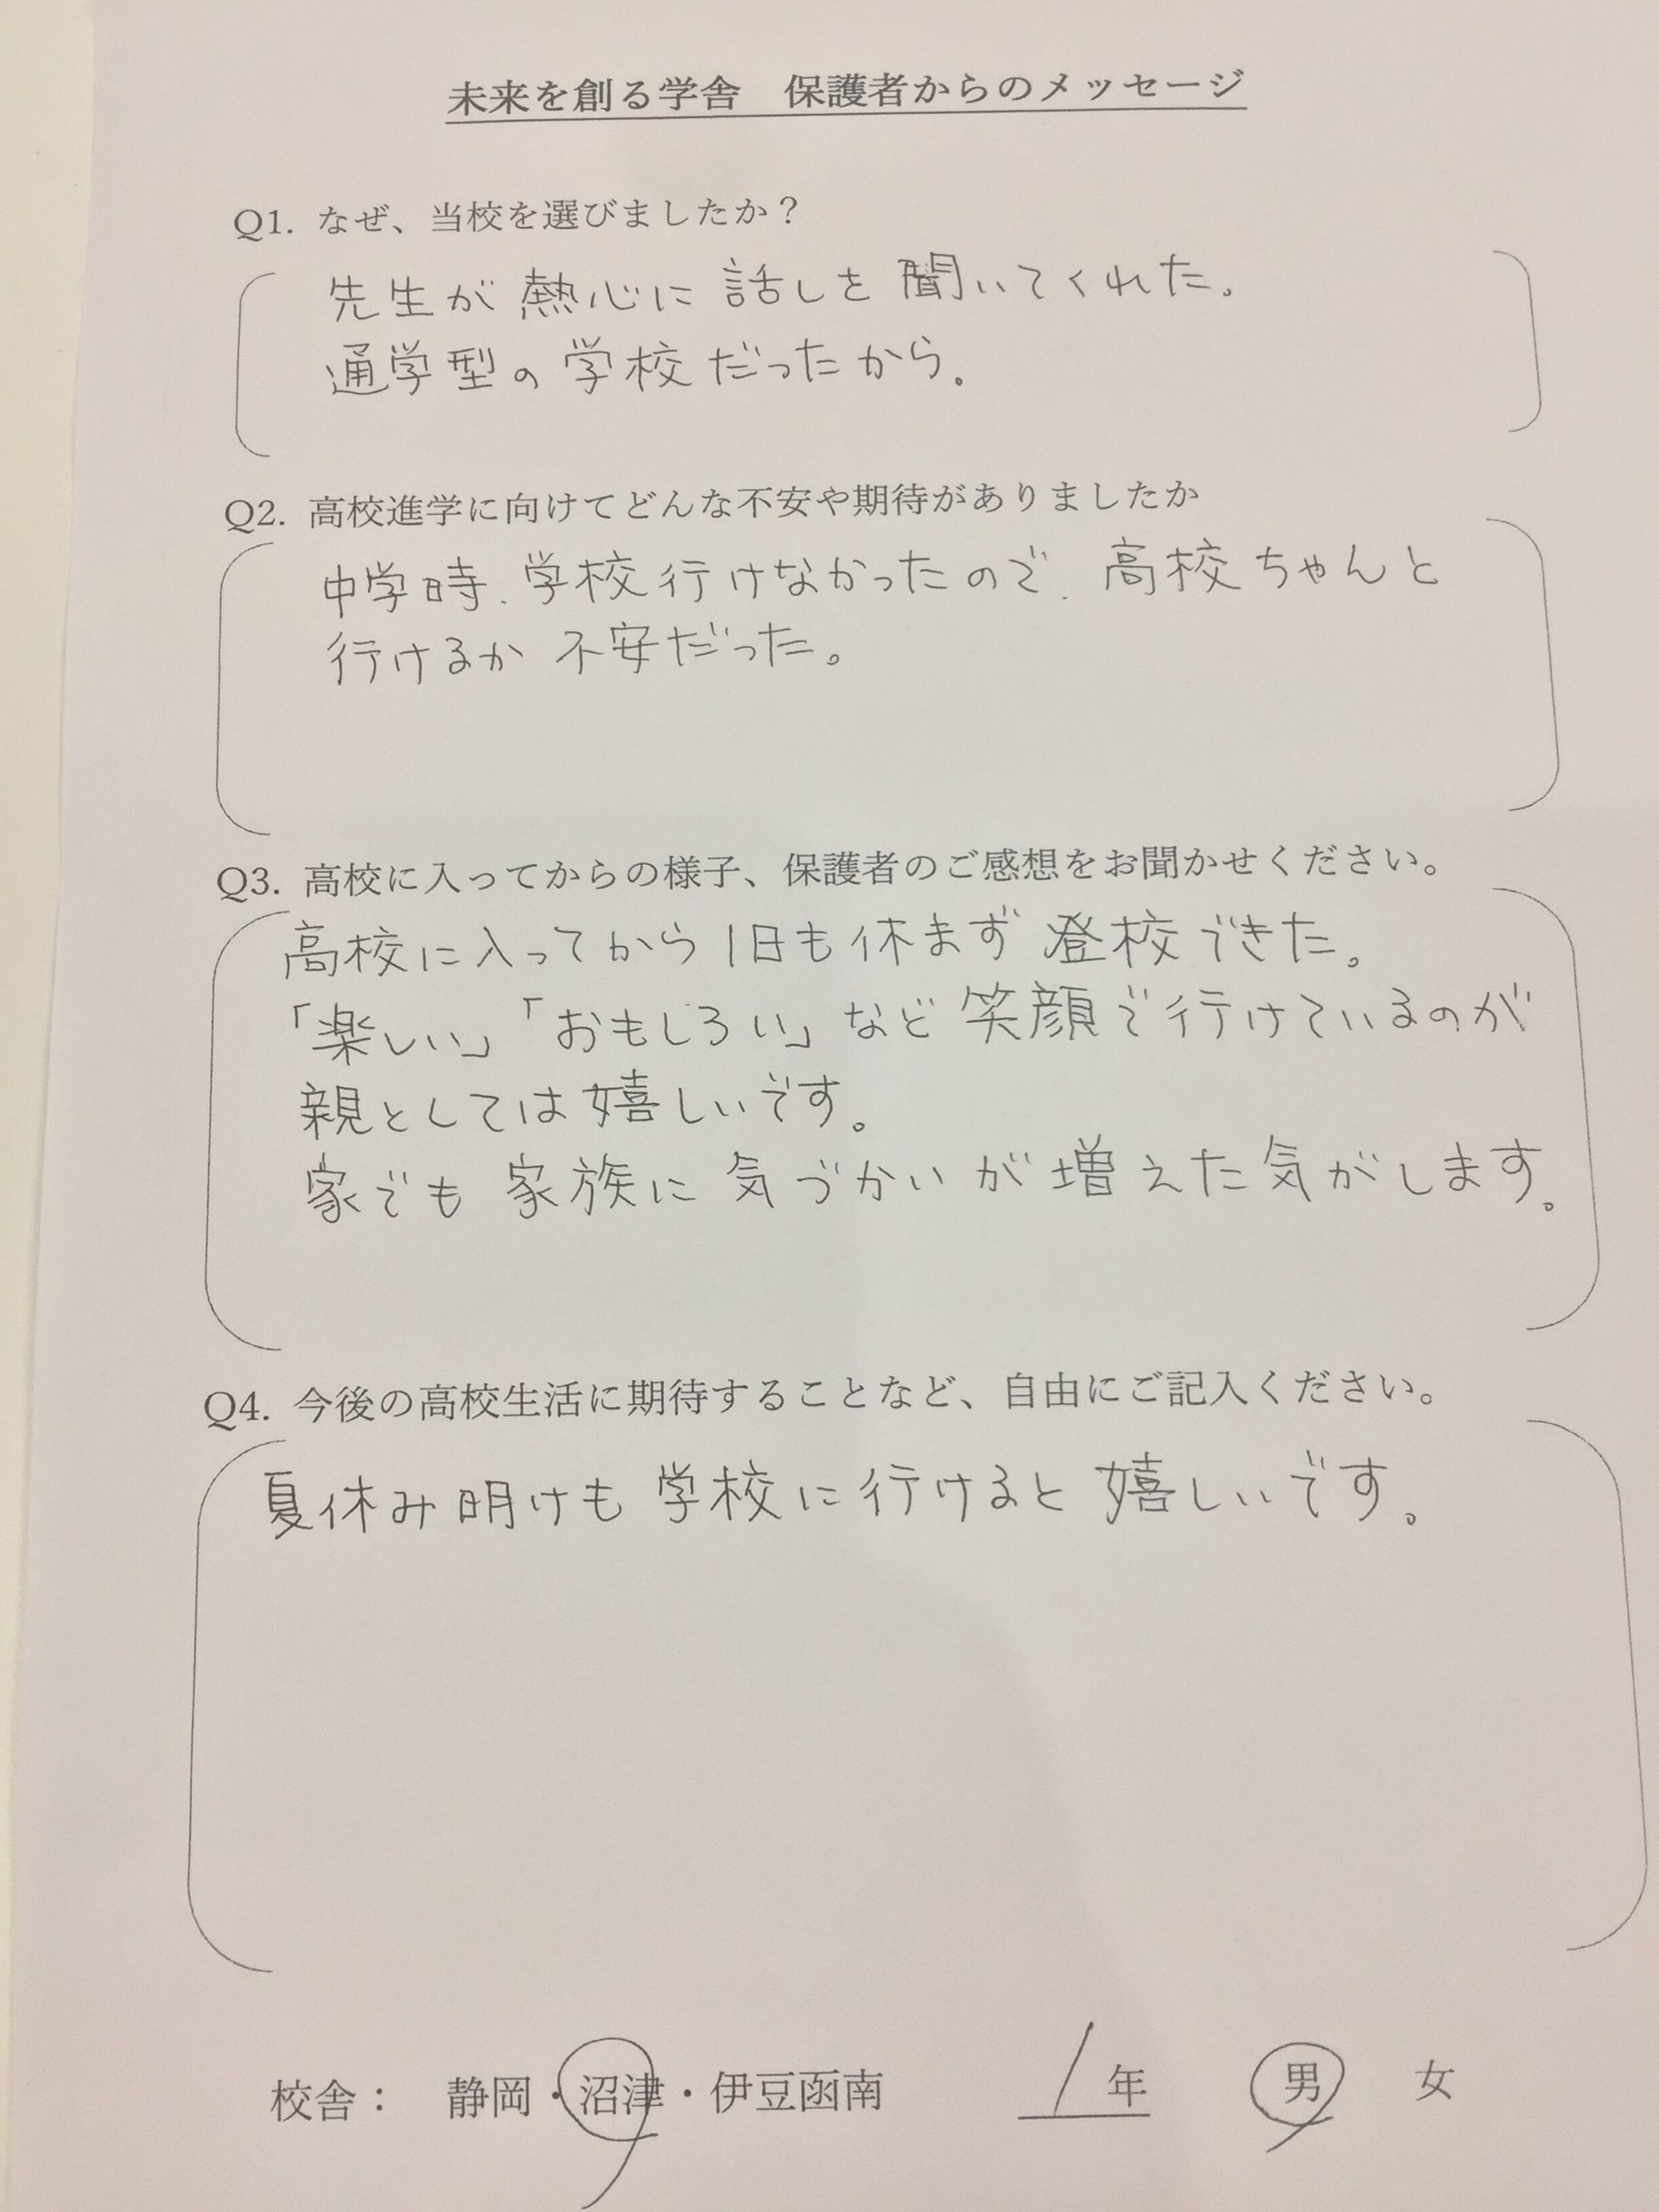 未来を創る学舎　保護者からのメッセージ
Q1. なぜ、当校を選びましたか？
先生が熱心に話しを聞いてくれた。
通学型の学校だったから。
Q2. 高校進学に向けてどんな不安や期待がありましたか
中学時、学校行けなかったので、高校ちゃんと
行けるか不安だった。
Q3. 高校に入ってからの様子、保護者のご感想をお聞かせください。
高校に入ってから1日も休まず登校できた。
「楽しい」「おもしろい」など笑顔で行けているのが
親としては嬉しいです。
家でも家族に気づかいが増えた気がします。
Q4. 今後の高校生活に期待することなど、自由にご記入ください。
夏休み明けも学校に行けると嬉しいです。
校舎：　静岡・沼津・伊豆函南　1年　男　女